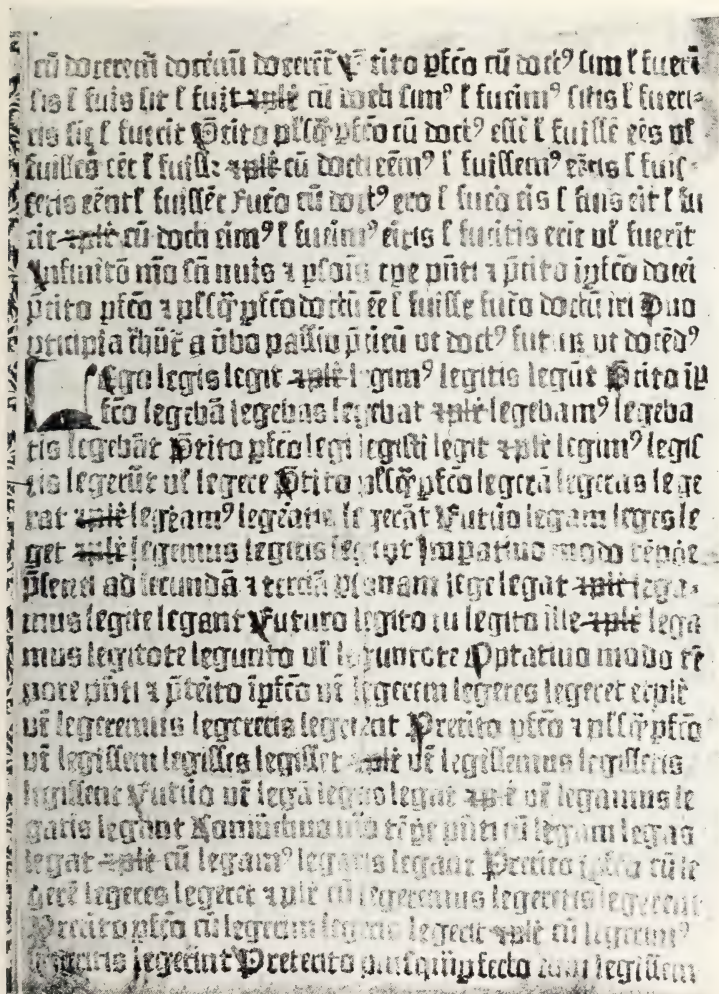 cū docererū doctuū docerēt P̄tito ꝑfcō cū doctꝰ sim ł fueri
sis ł fuis sit ł fuit ⁊ꝑlr̄ cū docti simꝰ ł fuerimꝰ sitis ł fueri-
tis sīt ł fuerit P̄tito ꝑlsq̄ꝑfcō cū doctꝰ essē ł fuissē eēs ul̄
fuisses eēt ł fuisset ⁊ꝑlr̄ cū docti eēmꝰ ł fuissemꝰ eētis ł fuis-
setis eēnt ł fuissēt Futo cū doctꝰ ero ł fuero eis ł fuis erit ł fu
rit ⁊ꝑlr̄ cū docti eimꝰ ł fuerimꝰ eritis ł fueritis erīt ul̄ fuerīt
Infinitō mō sn̄ nuis ⁊ ꝑsonis tꝑe pn̄ti ⁊ p̄tito īꝑfcō doceri
p̄tito ꝑfcō ⁊ ꝑlsq̄ꝑfcō doctū eē ł fuisse futo doctū iri Duo
pticipia th̄ūt̄ a ūbo passiuo p̄titū ut doctꝰ futur ut docēdꝰ
Lego legis legit ⁊ꝑlr̄ legimꝰ legitis legūt P̄tito iꝑ
fcō legebā legebas legebat ⁊ꝑlr̄ legebamꝰ legeba
tis legebāt P̄tito ꝑfcō legi legisti legit ⁊ꝑlr̄ legimꝰ legis
tis legerūt ul̄ legere P̄tito ꝑlsq̄ꝑfcō legerā legeras lege
rat ⁊ꝑlr̄ legeramꝰ legeratis legerāt Futuro legam leges le
get ⁊ꝑlr̄ legemus legetis legent Imꝑatiuo modo tēpōe
p̄senti ad secundā ⁊ terciā ꝑsonam lege legat ⁊ꝑlr̄ lega-
mus legite legant Futuro legito tu legito ille ⁊ꝑlr̄ lega
mus legitote legunto ul̄ leguntote Optatiuo modo tē
pore pn̄ti ⁊ p̄terito īꝑfcō ut̄ legerem legeres legeret etꝑlr̄
ut̄ legeremus legeretis legerent Pretito ꝑfcō ⁊ ꝑlsq̄ꝑfcō
ut̄ legissem legisses legisset ⁊ꝑlr̄ ut̄ legissemus legissetis
legissent Futuro ut̄ legā legas legat ⁊ꝑlr̄ ut̄ legamus le
gatis legant Coniūctiuo mō tēꝑe pn̄ti cū legam legas
legat ⁊ꝑlr̄ cū legamꝰ legatis legant Pretito īꝑfcō cū le
gerē legeres legeret ⁊ꝑlr̄ cū legeremus legeretis legerent
Pretito ꝑfcō cū legerim legeris legerit ⁊ꝑlr̄ cū legerimꝰ
legeritis legerint Preterito plusquāꝑfecto cum legissem